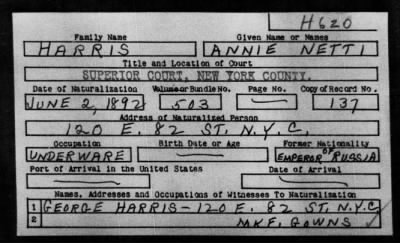 H620
Family Name Given Name or Names
HARRIS ANNIE NETTI
Title and Location of Court
SUPERIOR COURT, NEW YORK COUNTY.
Date of Naturalization Volume or Bundle No. Page No. Copy of Record No.
JUNE 2, 1892 503 — 137
Address of Naturalized Person
120 E. 82 ST. N.Y.C.
Occupation Birth Date or Age Former Nationality
UNDERWARE — EMPEROR OF RUSSIA
Port of Arrival in the United States Date of Arrival
— —
Names, Addresses and Occupations of Witnesses To Naturalization
1 GEORGE HARRIS - 120 E. 82 ST. N.Y.C
2 MKF. GOWNS